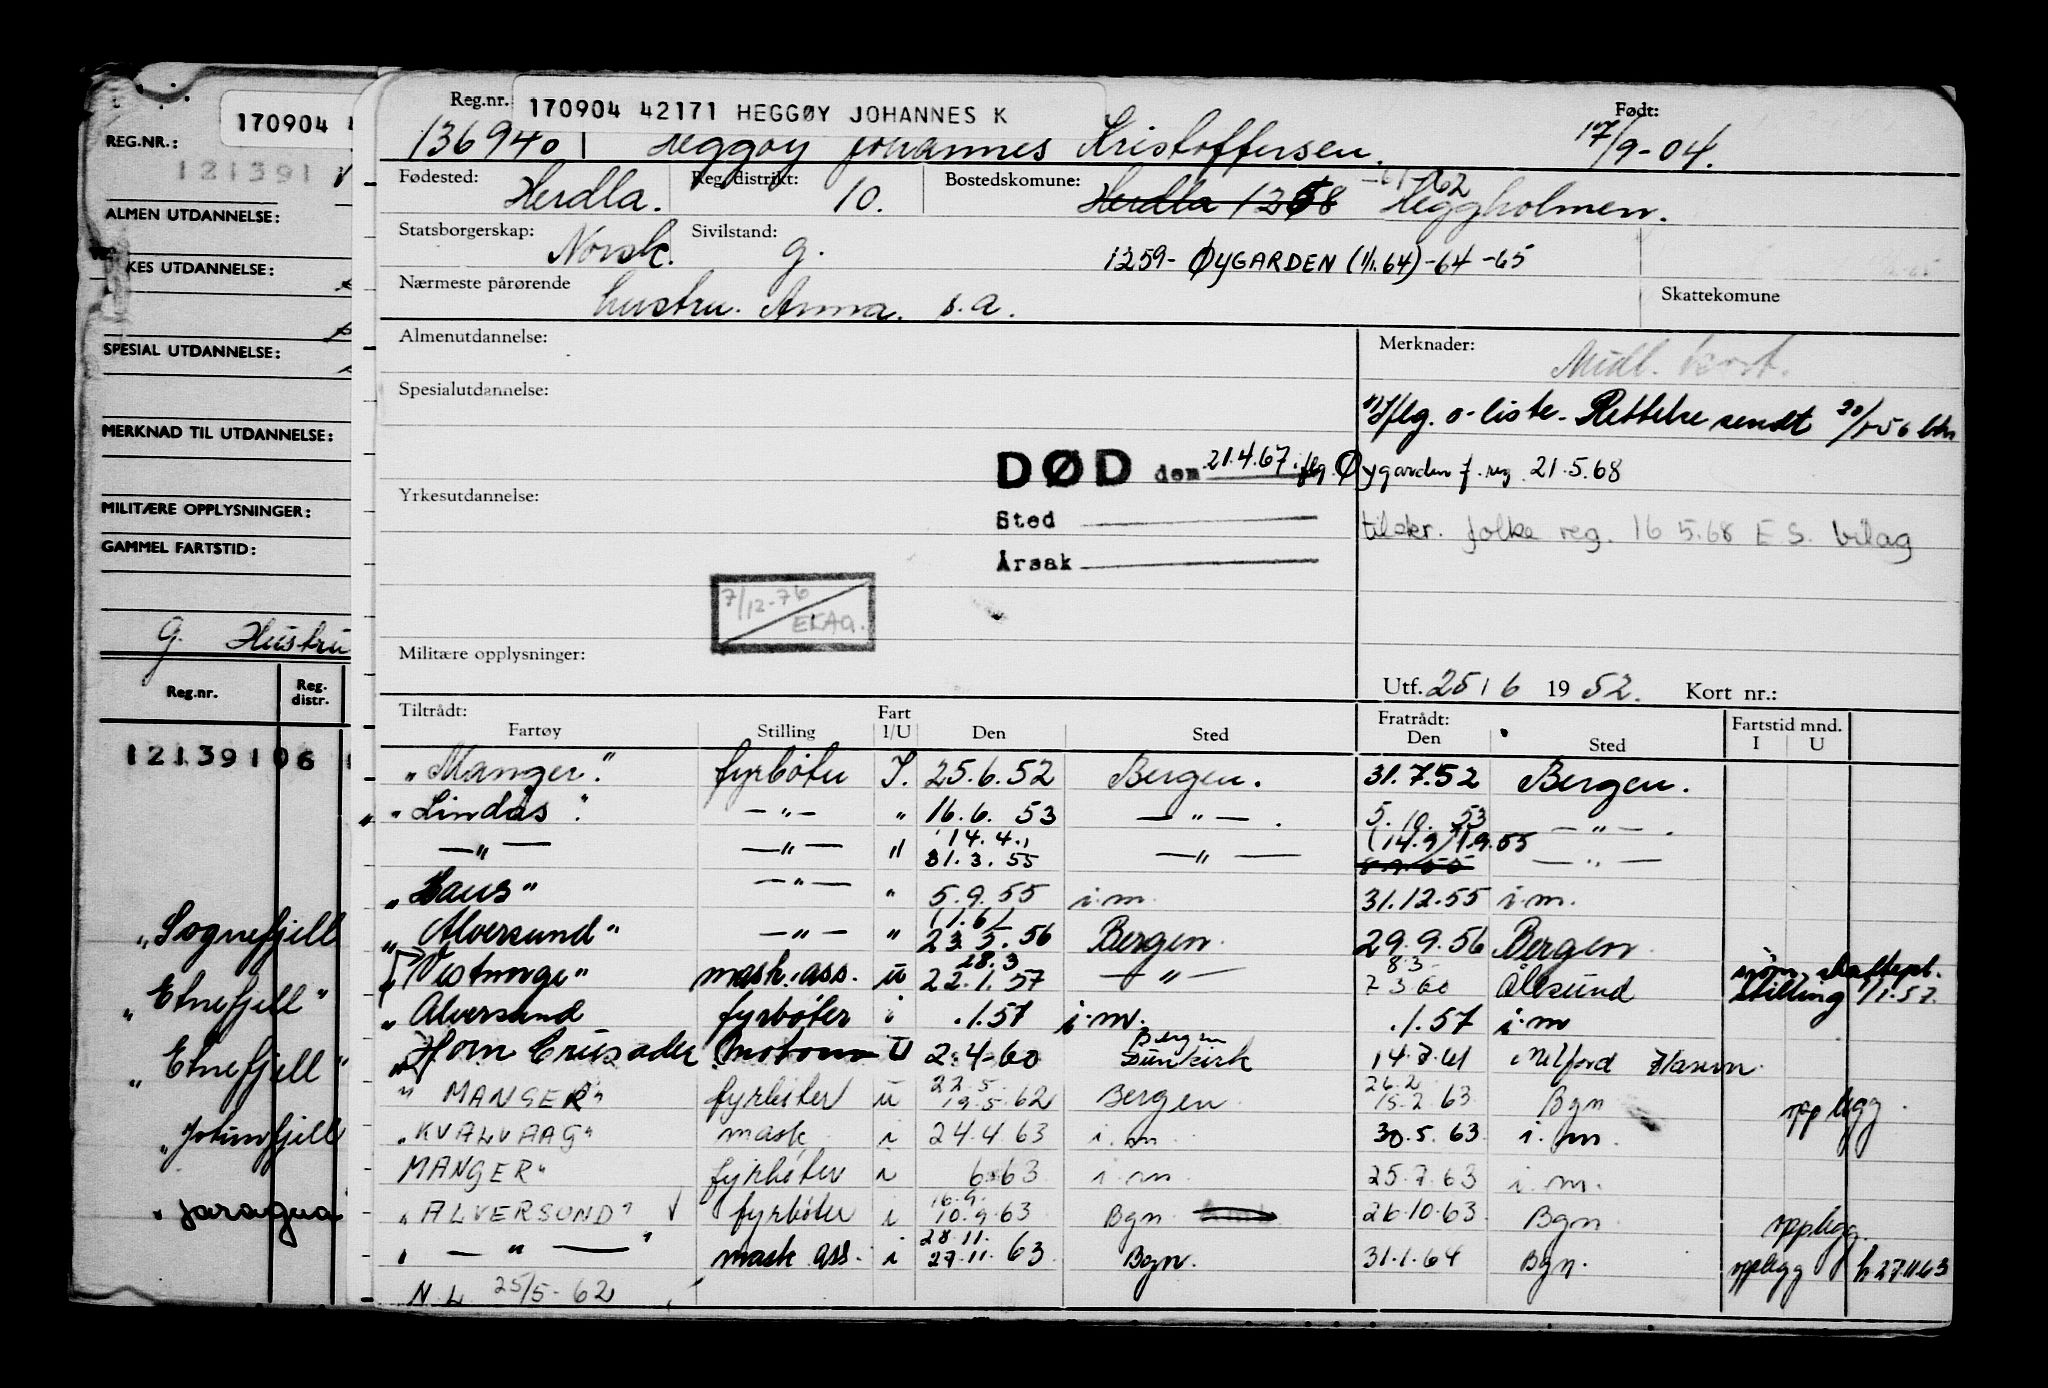 170904 4
REG.NR.:
121391
ALMEN UTDANNELSE:
KES UTDANNELSE:
SPESIAL UTDANNELSE:
MERKNAD TIL UTDANNELSE:
MILITÆRE OPPLYSNINGER:
GAMMEL FARTSTID:
G. Hustru
Reg.nr. Reg. distr.
12139106
"Sognefjell
"Etnefjell"
"Etnefjell"
"Jotunfjell
" Jaragua
Reg.nr. 170904 42171 HEGGØY JOHANNES K Født:
1369401 Heggøy Johannes Kristoffersen. 17/9-04.
Fødested: Herdla. Reg. distrikt: 10. Bostedskomune: Herdla 1258 -61-62 Heggholmen.
Statsborgerskap: Norsk. Sivilstand: g. 1259- ØYGARDEN (1/1.64)-64-65
Nærmeste pårørende hustru. Anna. s.a. Skattekomune
Almenutdannelse: Merknader: Midl. kort.
Spesialutdannelse: Iflg. o-liste. Rettelse sendt
DØD den 21.4.67. flg. Øygarden f. reg 21.5.68
Yrkesutdannelse:
Sted
tilskr. folke reg. 16 5.68 E S. bilag
Årsak
7/12-76
EKAG.
Militære opplysninger:
Utf. 25/6 1952. Kort nr.:
Tiltrådt: Fartøy Stilling Fart I/U Den Sted Fratrådt: Den Sted Fartstid mnd. I U
"Manger." fyrbøter I. 25.6.52 Bergen. 31.7.52 Bergen.
" "Lindås". -"- " 16.6. 53 -"-. 5.10.53 -"-.
-"- -"- " 14.4., 31.3.55 -"- (14.9) 1.9.55 -"-
"Haus" -"- " 5.9.55 i.m. 31.12.55 i.m.
"Alversund" -"- " (1.6) 23.5.56 Bergen. 29.9.56 Bergen.
"Vestnorge" mask.ass. u 28.3 22.1.57 -"- 8.3 7 3 60 Ålesund stilling 1/1.57.
"Alversund fyrbøter i .1.57 i.m. .1.57 i.m
"Horn Crusader. Motorm U 2.4-60 Bergen Dunkirk 14.7.61 Milford Haven
" MANGER" fyrbøter u 22.5 19.5.62 Bergen 26.2 15.2.63 Bgn opplegg.
"KVALVAAG" mask. i 24.4 63 i.m. 30.5.63. i.m.
MANGER" fyrbøter i 6 63 i.m. 25.7.63 i.m.
"ALVERSUND" fyrbøter i 16.9. 10.9.63 Bgn 26.10.63 Bgn opplegg.
" -"- " mask ass. i 28.11. 27.11.63 Bgn. 31.1.64 Bgn. opplegg fr 27 11 63
N.L 25/5-62